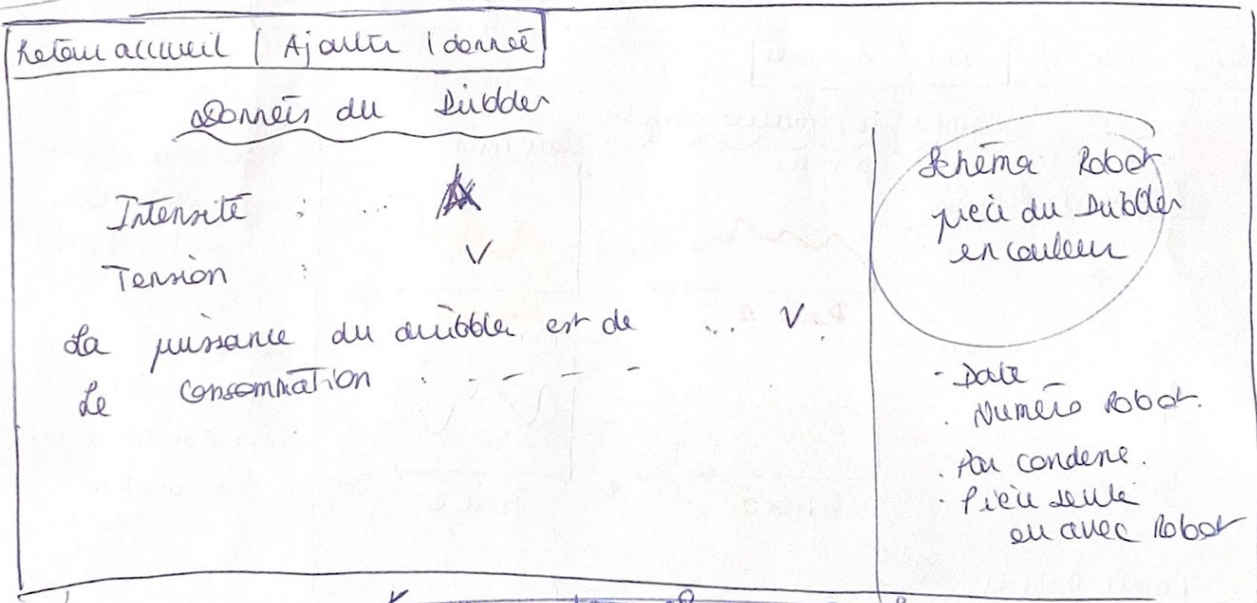 Retour accueil | Ajouter 1 donneé
Donneés du Dribbler
Intensité : ... A
Tension : V
La puissance du dribbler est de ... V.
Le Consommation : - - - -
Schéma Robot
piece du Dribbler
en couleur
- Date
. Numéro Robot.
. Pièce seule
ou avec Robot